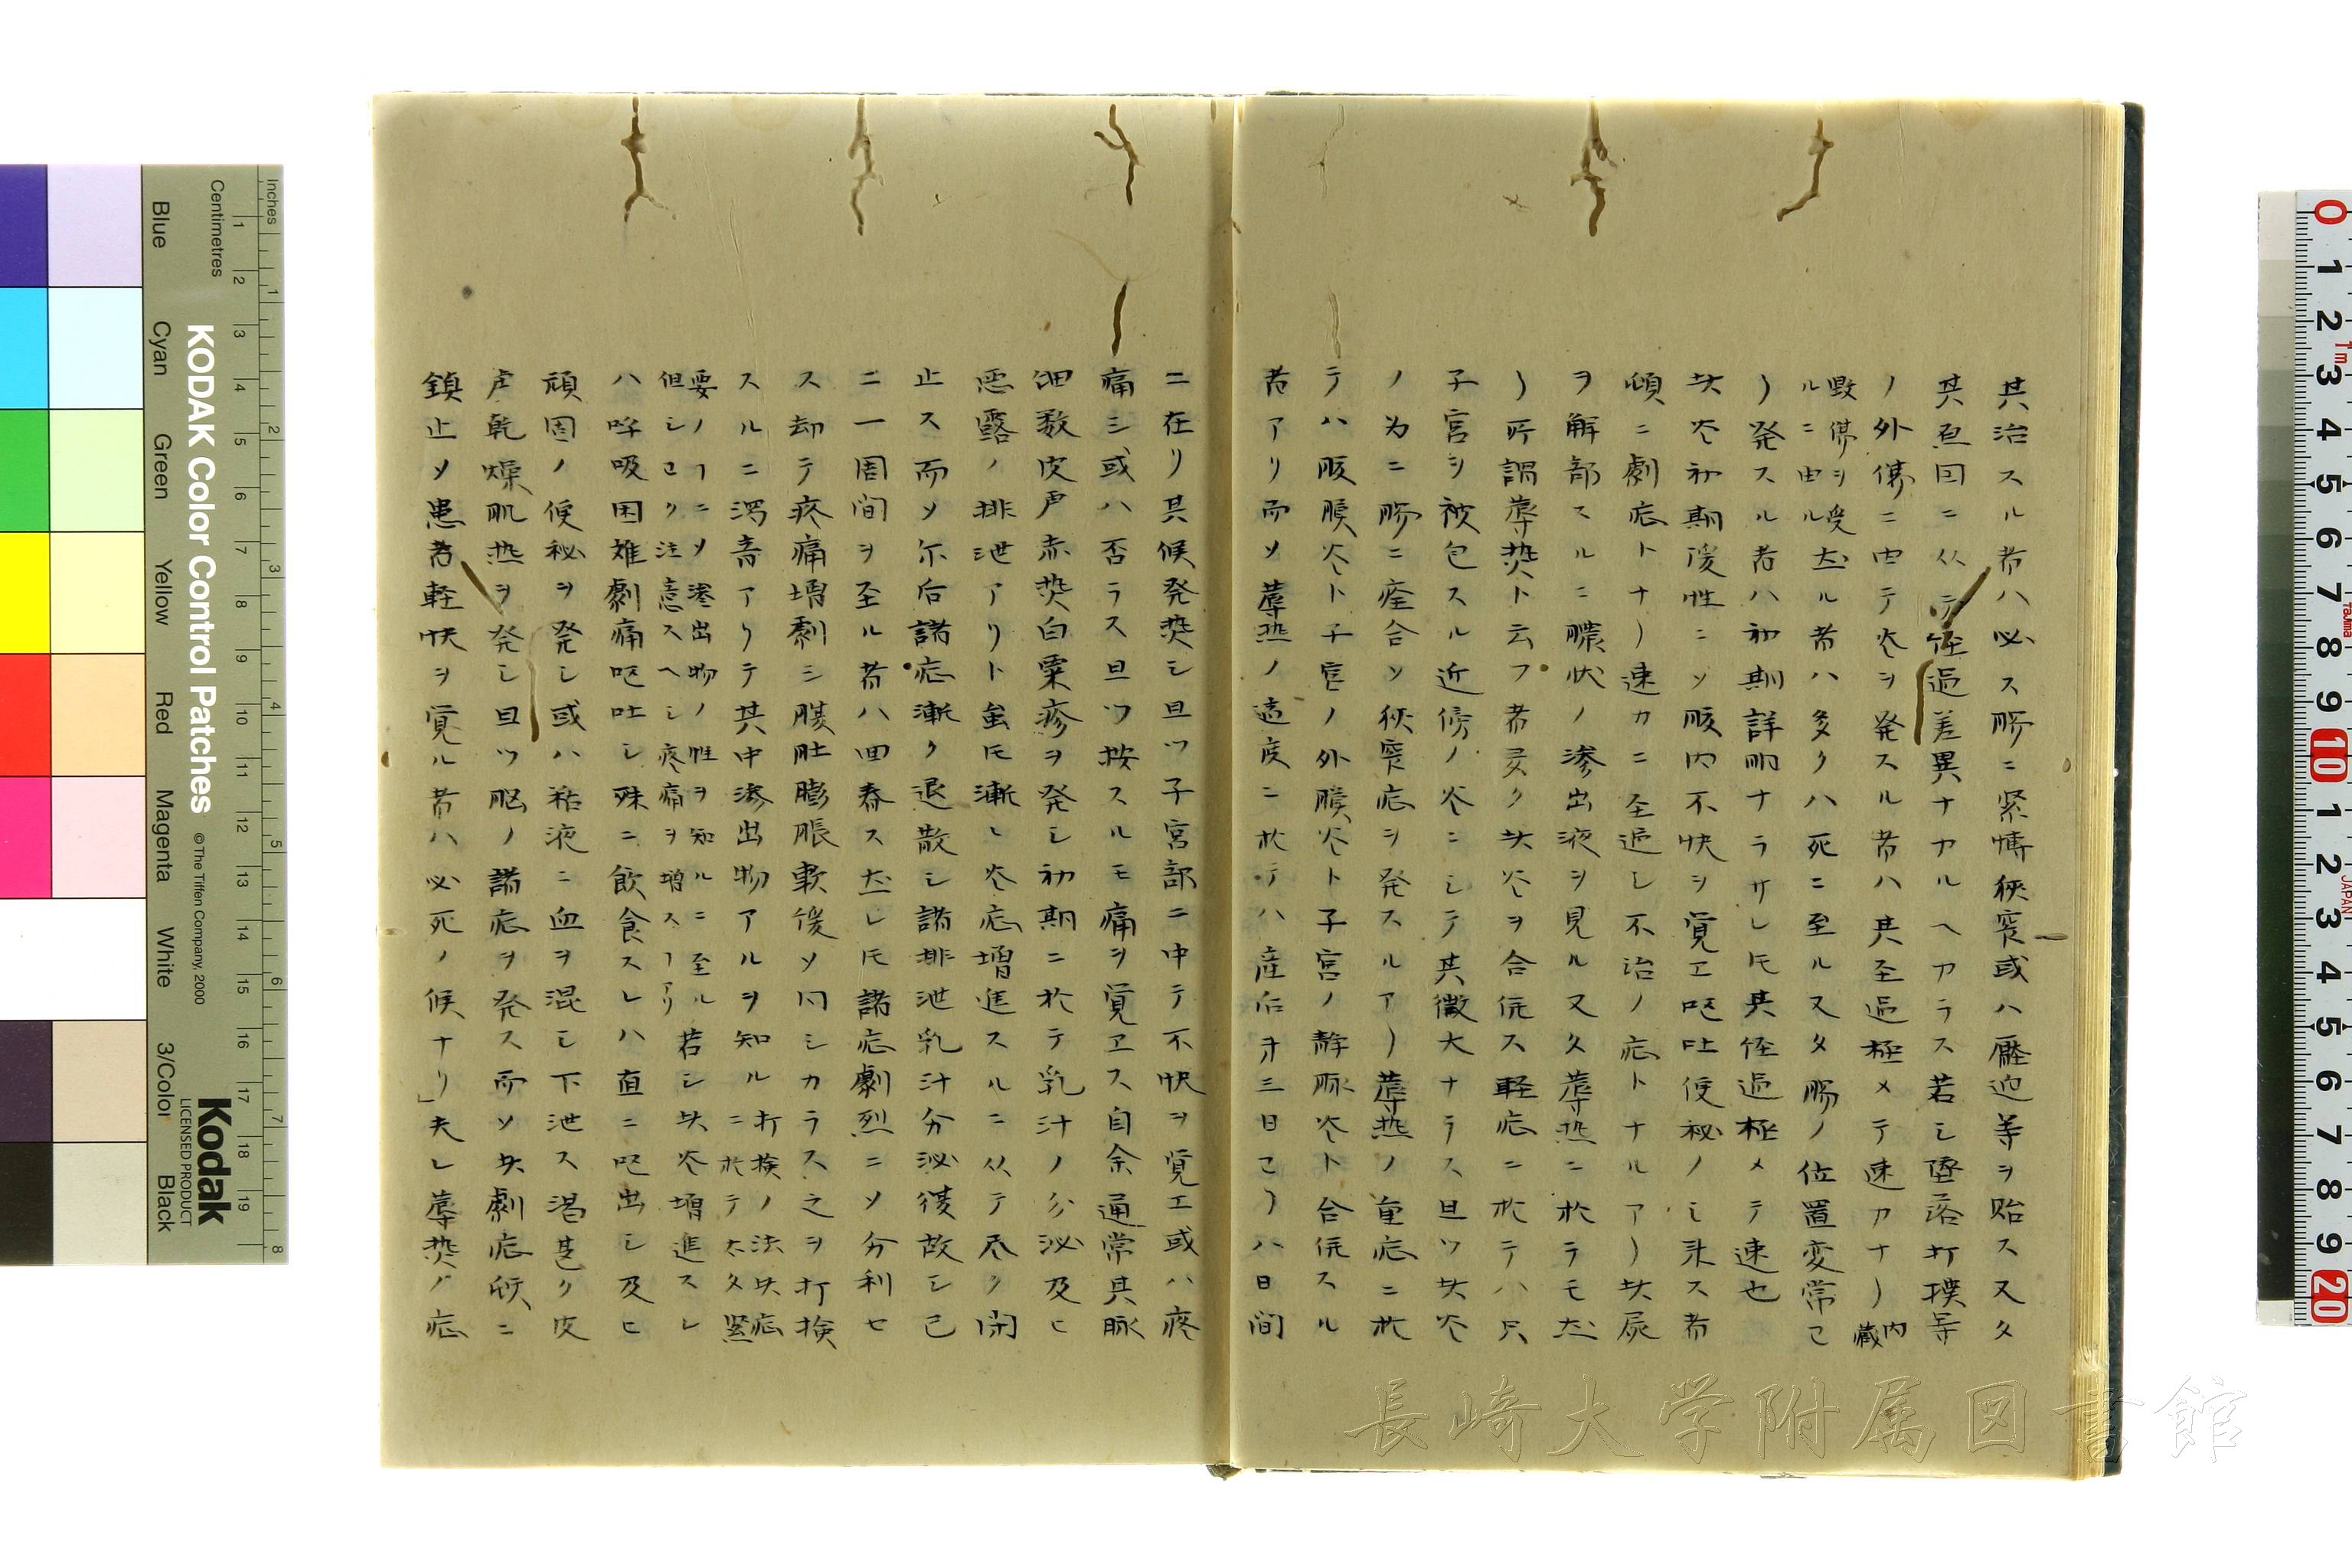 其治スル者ハ必ス腸ニ緊愽狹窄或ハ壓迫等ヲ貽ス又タ
其原因ニ从テ徃過差異ナカルヘカラス若シ墜落打撲等
ノ外傷ニ由テ炎ヲ発スル者ハ其至過極メテ速カナリ内藏
毀傷ヲ受
ルニ由ル
尤ル者ハ多クハ死ニ至ル又タ腸ノ位置変常ヨ
リ発スル者ハ初期詳明ナラサレ𪜈其徃過極メテ速也
此炎初期漫性ニ乄腹内不快ヲ覚エ呕吐便秘ノミ来ス者
傾ニ劇症トナリ速カニ至過シ不治ノ症トナルアリ此屍
ヲ解部スルニ膿状ノ滲出液ヲ見ル又タ蓐熱ニ於テモ尤
リ所謂蓐𤏋ト云フ者多ク此炎ヲ合併ス軽症ニ於テハ只
子宮ヲ被包スル近傍ノ炎ニシテ其徴大ナラス且ツ此炎
ノ为ニ腸ニ痊合ソ狹窄症ヲ発スルアリ蓐热ノ重症ニ於
テハ腹膜炎ト子宮ノ外膜炎ト子宮ノ静脉炎ト合併スル
者アリ而乄蓐热ノ適度ニ於テハ産后㐧三日ヨリハ日間
ニ在リ其候発𤏋シ且ツ子宮部ニ中テ不快ヲ覚エ或ハ疼
痛シ或ハ否ラス旦ツ按スルモ痛ヲ覚ヱス自余通常其脉
細数皮声赤𤏋白粟疹ヲ発シ初期ニ於テ乳汁ノ分泌及ヒ
悪露ノ排泄アリト虽𪜈漸々炎症増進スルニ从テ尽ク閉
止ス而乄尓后諸症漸ク退散シ諸排泄乳汁分泌復故シ已
ニ一周間ヲ至ル者ハ回春ス尤レ𪜈諸症劇烈ニ乄分利セ
ス却テ疼痛増劇シ腹肚膨脹軟優乄円シカラス之ヲ打検
スルニ濁音アリテ其中滲出物アルヲ知ル打検ノ法此症
ニ於テ太タ緊
要ノ𬼀ニ乄滲出物ノ性ヲ知ルニ至ル
但シヨク注意スヘシ疼痛ヲ増ス𬼀アリ
若シ此炎増進スレ
ハ呼吸困难劇痛呕吐シ殊ニ飲食スレハ直ニ呕出シ及ヒ
頑固ノ便秘ヲ発シ或ハ粘液ニ血ヲ混シ下泄ス渇甚タ皮
膚乾燥肌热ヲ発シ且ツ脳ノ諸症ヲ発ス而乄此劇症倐ニ
鎮止乄患者軽快ヲ覚ル者ハ必死ノ候ナリ」夫レ蓐𤏋ノ症
長崎大学附属図書館